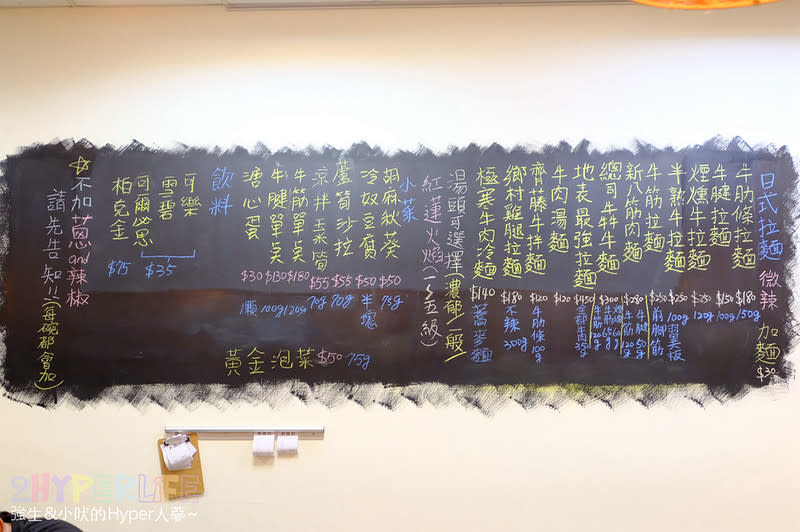 日式拉麵 微辣 加麵 $30
牛肋條拉麵 $180 150g
牛腱拉麵 $150 100g
煙燻牛拉麵 $250 120g
半熟牛拉麵 $250 100g 翼板
牛筋拉麵 $250 筋 腳筋
新八筋肉麵 $280 牛腱50g 牛筋120g
總司牛牛麵 $300
地表最強拉麵 $450
牛肉湯麵 $120
齊藤牛拌麵 $120 牛肋條100g
鄉村雞腿拉麵 $180 不辣 300g
極寒牛肉冷麵 $140 蕎麥麵
湯頭可選擇(濃郁、一般)
紅蓮火焰(1~5級)
小菜
胡麻秋葵 $50 75g
冷奴豆腐 $50 半塊
蘆筍沙拉 $55 70g
涼拌玉筍 $55 70g
牛筋單點 $180 120g
牛腱單點 $130 100g
溏心蛋 $30 1顆
黃金泡菜 $50 75g
飲料
可樂
雪碧
可爾必思
$35
柏克金 $75
☆不加蔥and辣椒
請先告知!!(每碗都會加)
2HYPERLIFE
強生&小吠的Hyper人蔘~